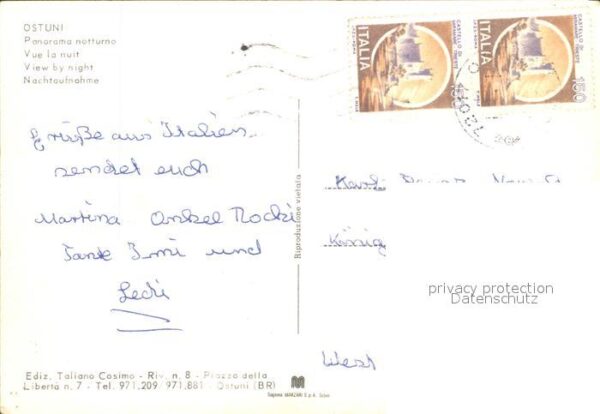 OSTUNI
Panorama notturno
Vue la nuit
View by night
Nachtaufnahme
CASTELLO DI MIRAMARE TRIESTE
ITALIA
150
CASTELLO DI MIRAMARE TRIESTE
ITALIA
150
Grüße aus Italien
sendet euch
Martina Onkel Rocki
Tante Irmi und
Lecki
Riproduzione vietata
König
West
privacy protection
Datenschutz
Ediz. Taliano Cosimo - Riv. n. 8 - Piazza della
Libertà n. 7 - Tel. 971,209/971,881 - Ostuni (BR)
M